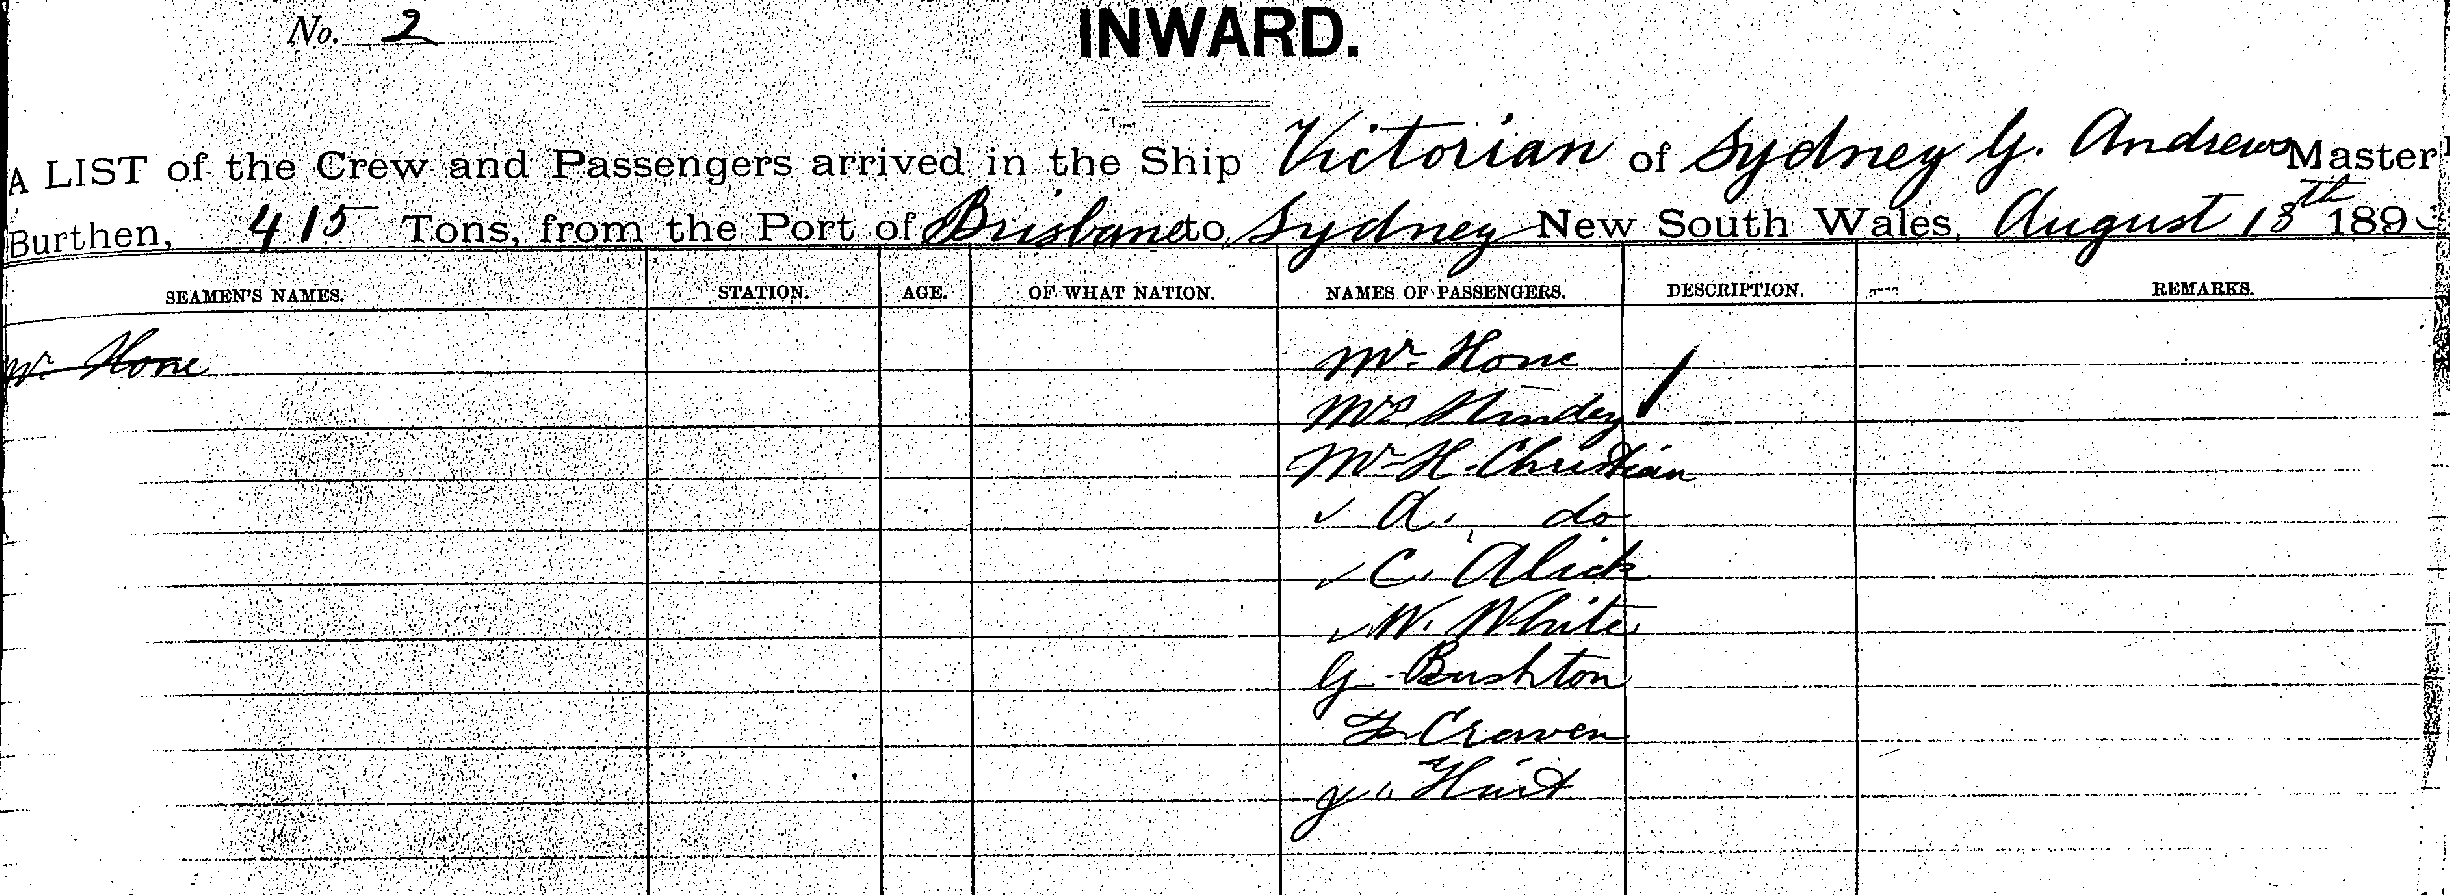 No. 2
INWARD.
A LIST of the Crew and Passengers arrived in the Ship Victorian of Sydney G. Andrews Master
Burthen, 415 Tons, from the Port of Brisbane to Sydney New South Wales, August 18th 1893
SEAMEN'S NAMES. STATION. AGE. OF WHAT NATION. NAMES OF PASSENGERS. DESCRIPTION. REMARKS.
Mr Hone Mr Hone
Mrs
Mr H. Christian
✓ A. do
✓ C. Alick
✓ W. White
G. Bushton
Craven
J. Hurst